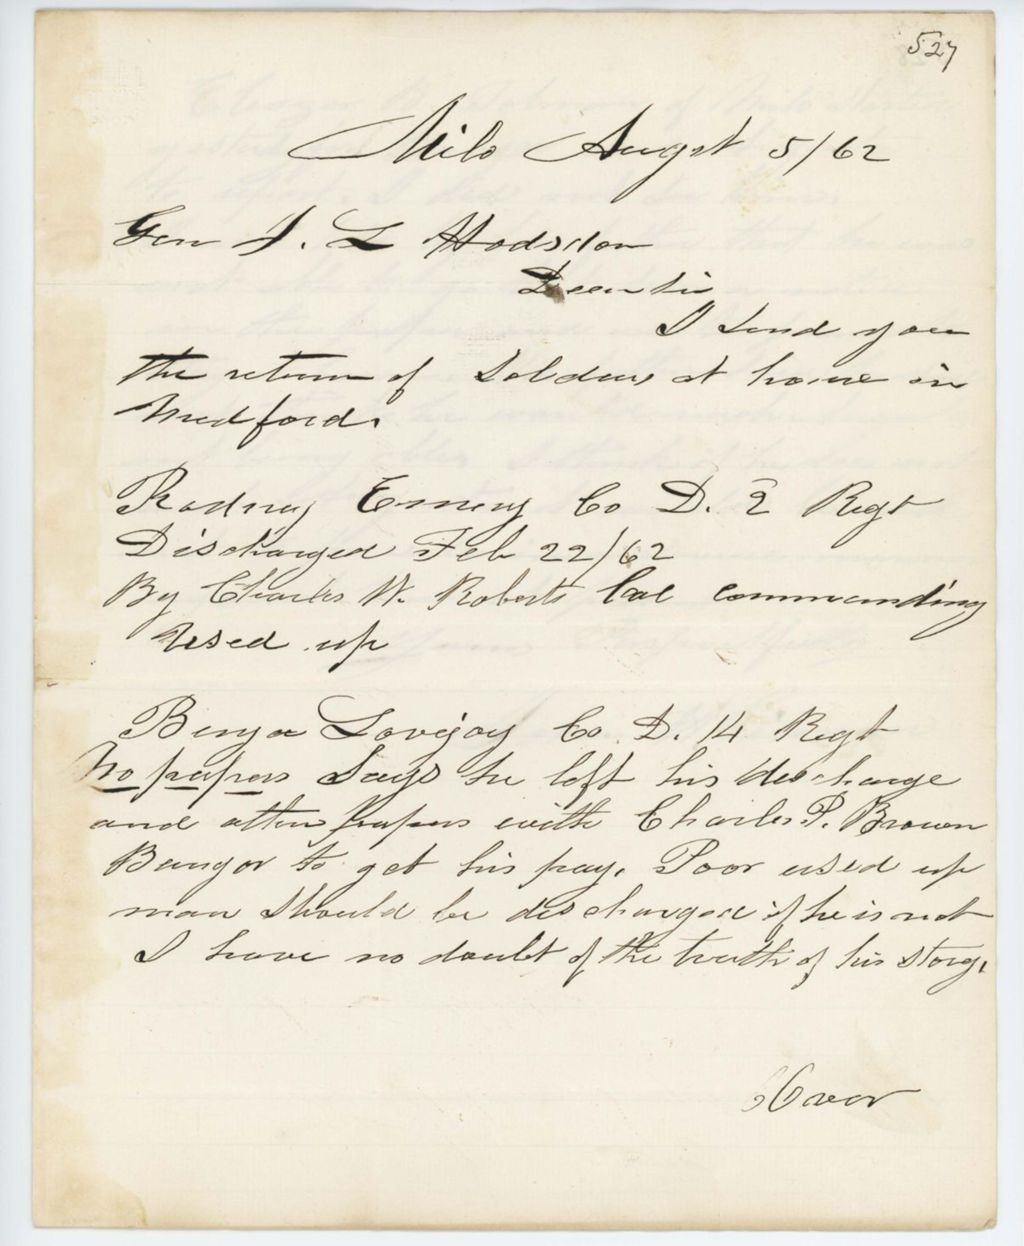 527
Milo Augst 5/62
Gen J. L Hodsdon
Dear Sir
I send you
the return of Soldiers at home in
Medford.
Rodney Emery Co D. 2 Regt
Discharged Feb 22/62
By Charles W. Roberts Col commanding
Used up
Benja Lovejoy Co. D. 14 Regt
No papers Says he left his discharge
and other papers with Charles P. Brown
Bangor to get his pay. Poor used up
man should be discharged if he is not
I have no doubt of the truth of his story.
Over